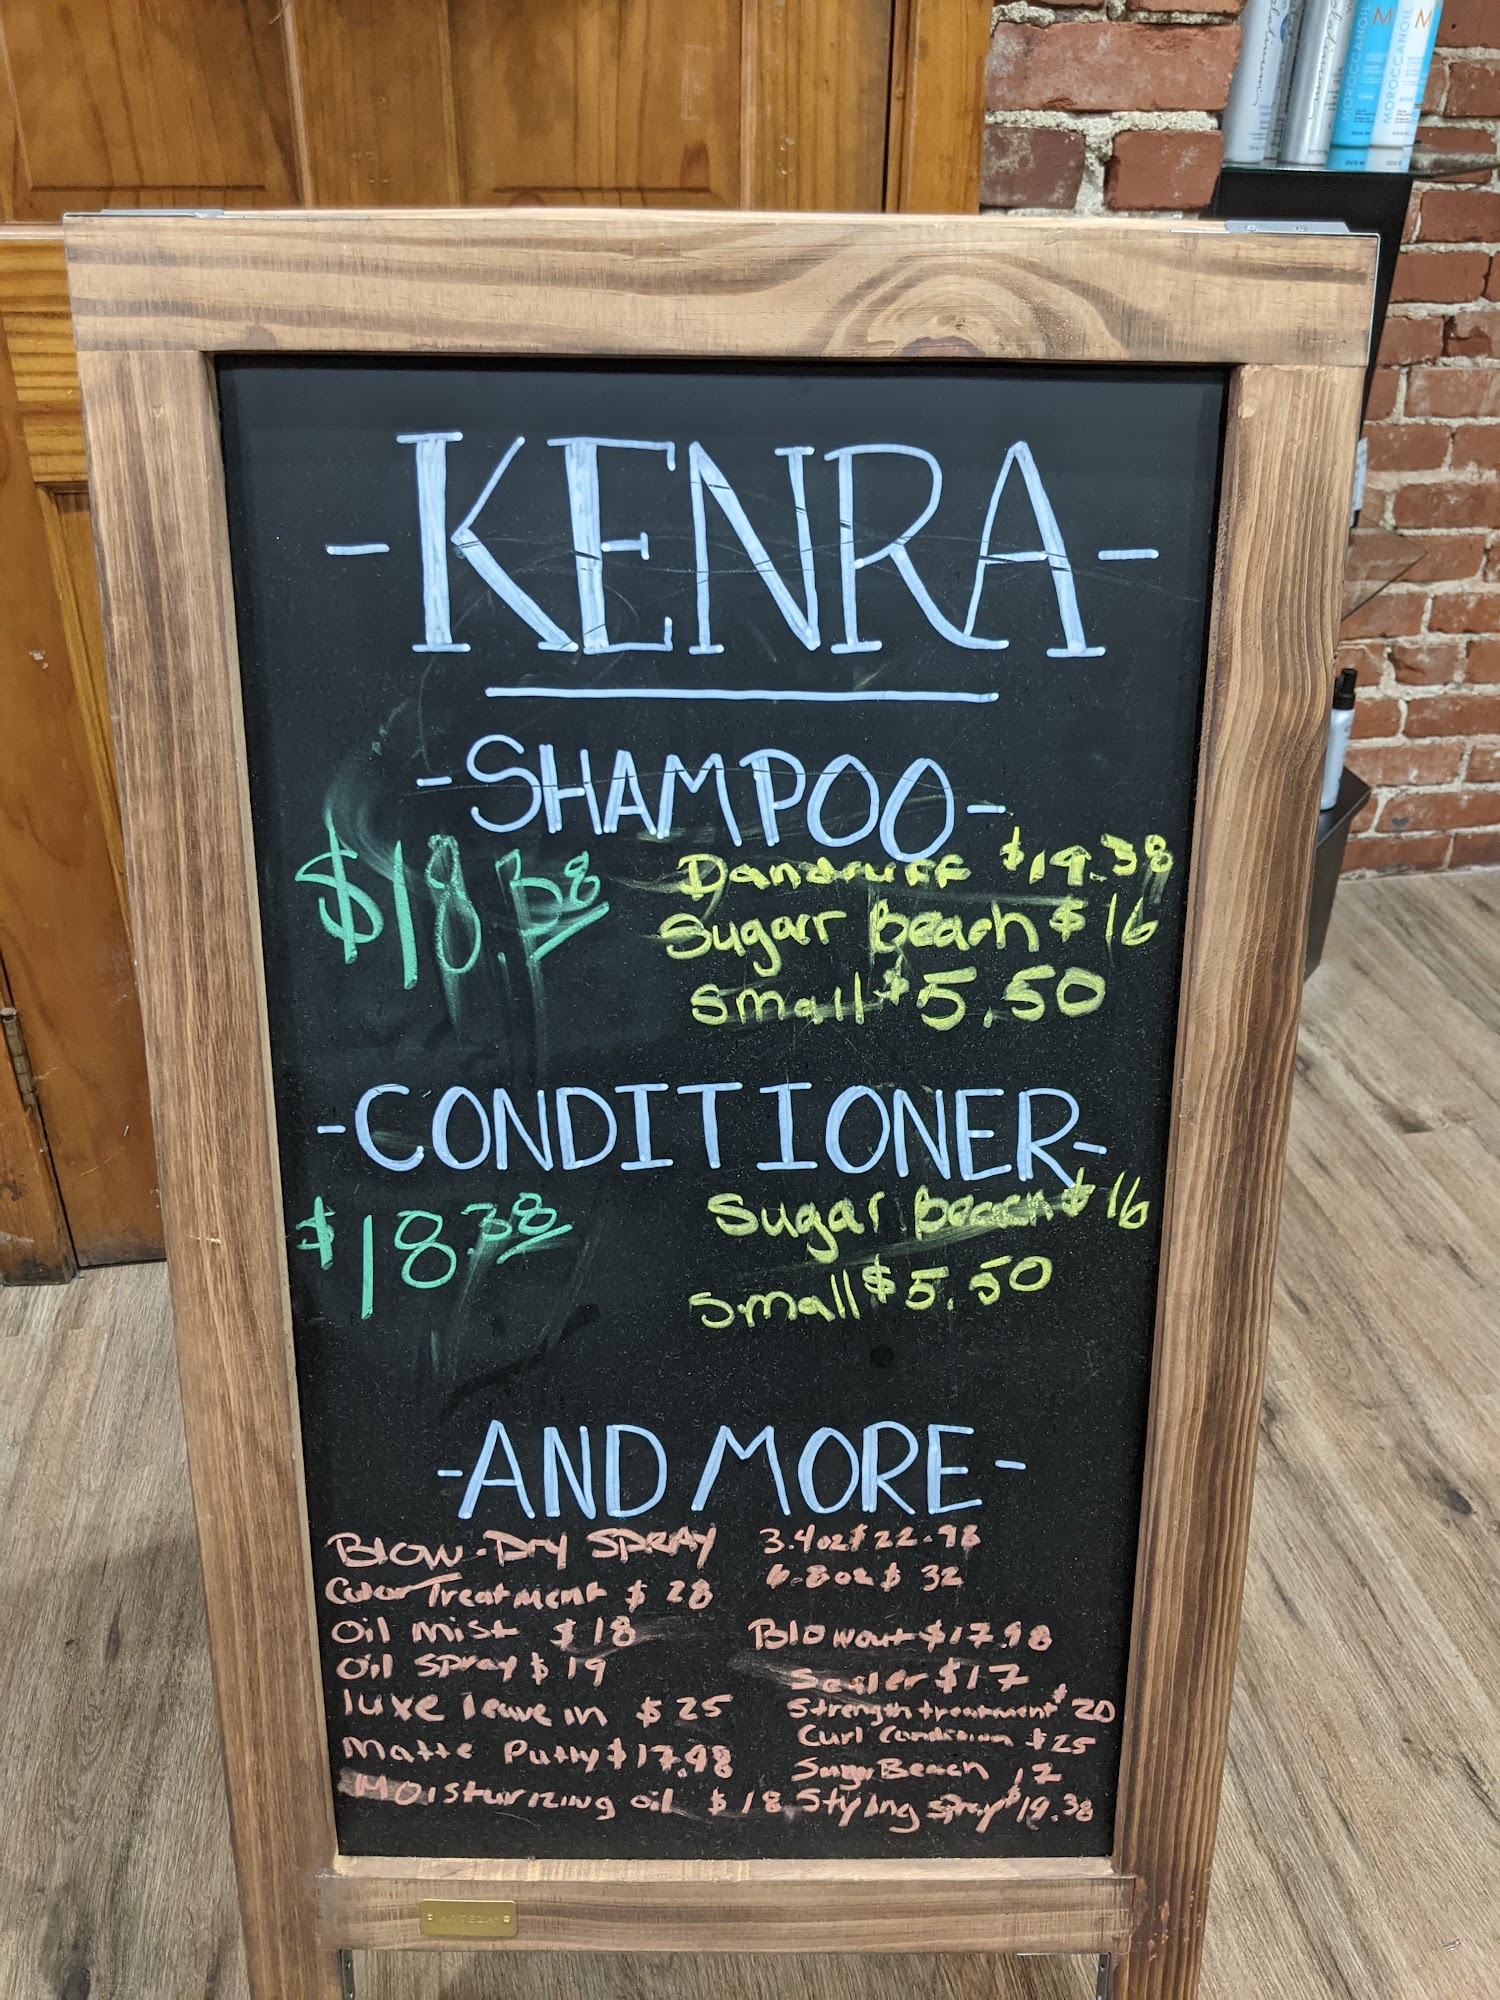 -KENRA-
-SHAMPOO-
$18.38
Dandruff $19.38
Sugarr Beach $16
Small $5.50
-CONDITIONER-
$18.38
Sugar beach $16
Small $5.50
-AND MORE-
Blow-Dry SPRAY 3.4oz $22.98
6.8oz $32
Color Treatment $28
Oil mist $18
Oil spray $19
luxe leave in $25
Matte Putty $17.98
Moisturizing oil $18
Blowout $17.98
Sealer $17
Strength treatment $20
Curl Condition $25
Sugar Beach 17
Styling spray $19.38
ARTEZA
MOROCCANOIL
MOROCCANOIL